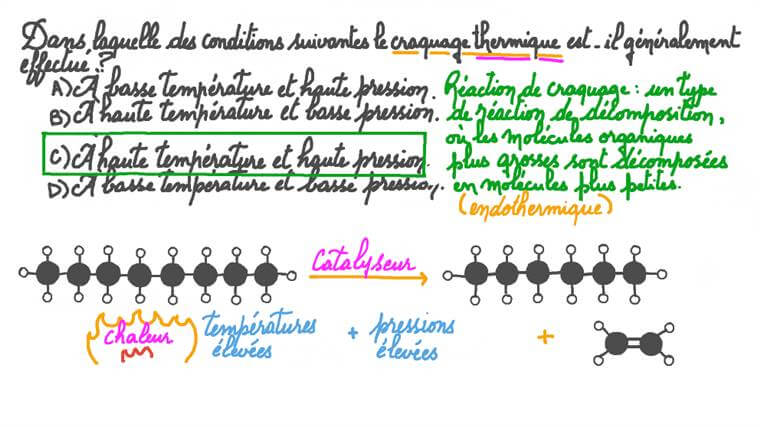 Dans laquelle des conditions suivantes le craquage thermique est-il généralement
effectué ?
A) À basse température et haute pression.
B) À haute température et basse pression.
C) À haute température et haute pression.
D) À basse température et basse pression.
Réaction de craquage : un type
de réaction de décomposition,
où les molécules organiques
plus grosses sont décomposées
en molécules plus petites.
(endothermique)
Catalyseur
chaleur
températures
élevées
+ pressions
élevées
+